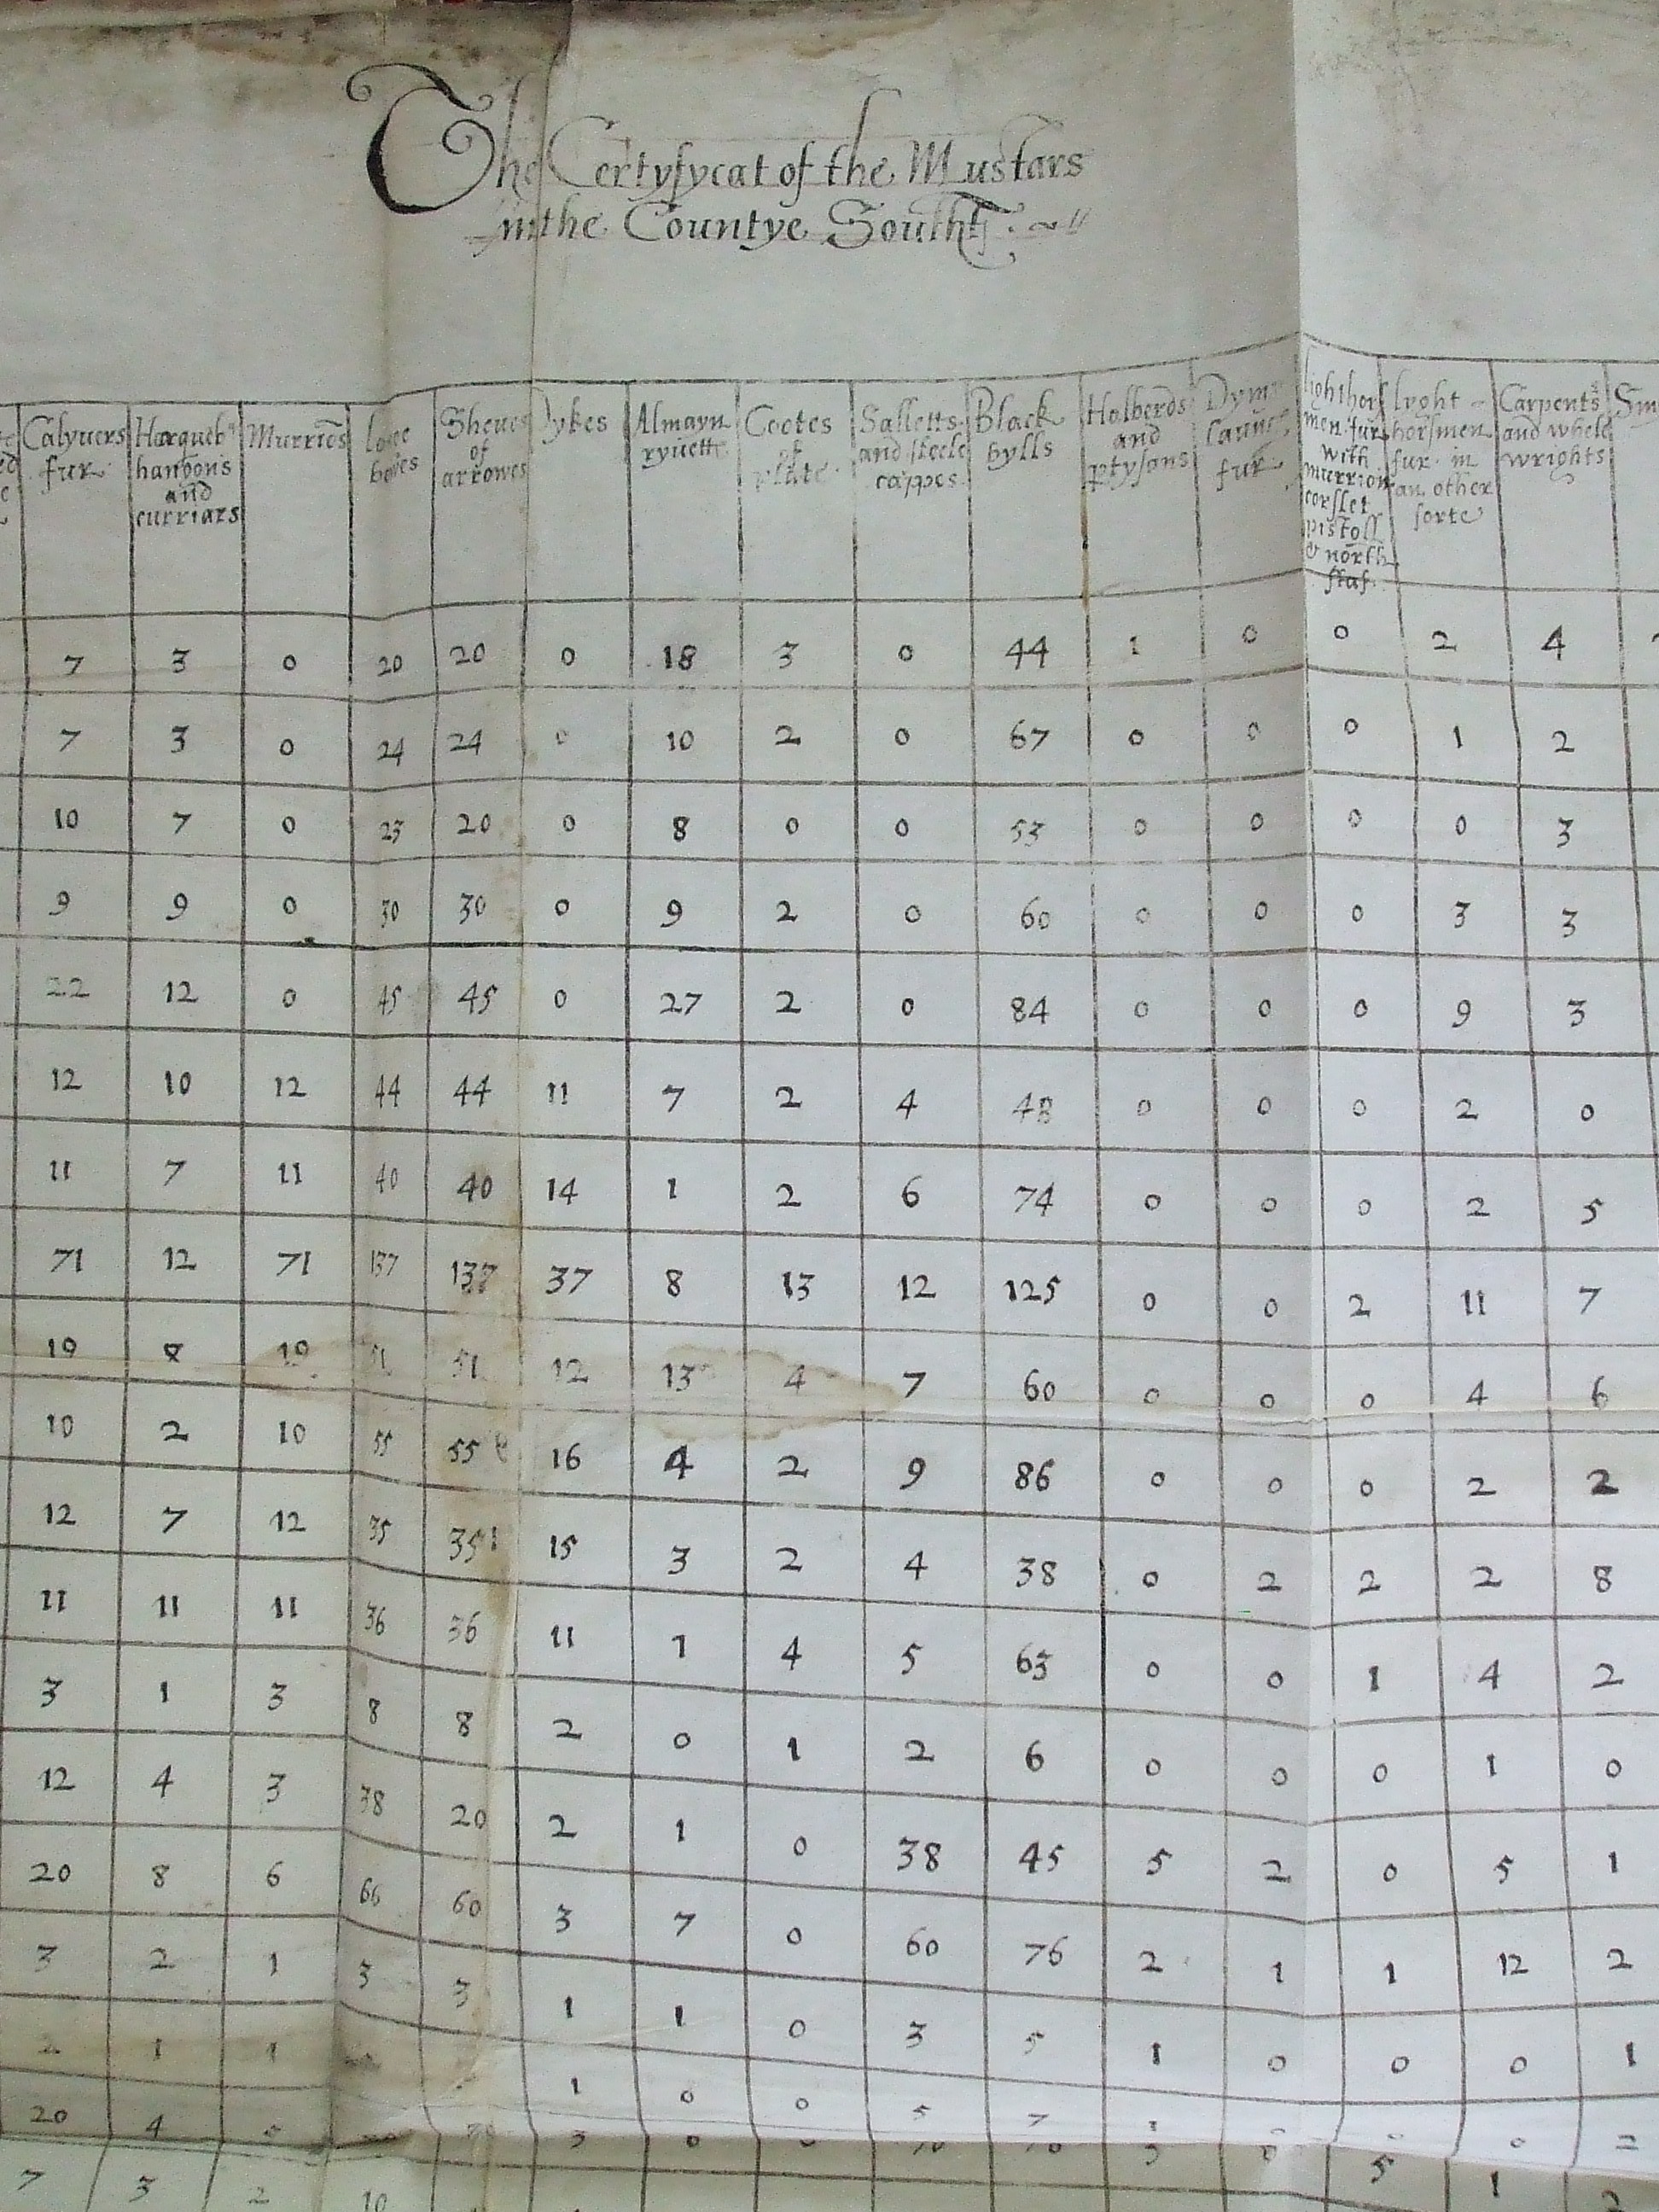 The Certyfycat of the Mustars
in the Countye Southt
Calyvers fur Harqueb hanɡons and curriars Murries longe bowes Sheves of arrowes Pykes Almayn ryvette Cootes of plate Salletts and steele cappes Black bylls Holberds and ptysans Dym launc fur lighthors men fur with murrion corslet pistoll & north staf lyght horsmen fur in an other sorte Carpents and whele wrights Sm
7 3 0 20 20 0 18 3 0 44 1 0 0 2 4
7 3 0 24 24 0 10 2 0 67 0 0 0 1 2
10 7 0 23 20 0 8 0 0 53 0 0 0 0 3
9 9 0 30 30 0 9 2 0 60 0 0 0 3 3
22 12 0 45 45 0 27 2 0 84 0 0 0 9 3
12 10 12 44 44 11 7 2 4 48 0 0 0 2 0
11 7 11 40 40 14 1 2 6 74 0 0 0 2 5
71 12 71 137 137 37 8 13 12 125 0 0 2 11 7
19 8 19 51 51 12 13 4 7 60 0 0 0 4 6
10 2 10 55 55 16 4 2 9 86 0 0 0 2 2
12 7 12 35 35 15 3 2 4 38 0 2 2 2 8
11 11 11 36 36 11 1 4 5 63 0 0 1 4 2
3 1 3 8 8 2 0 1 2 6 0 0 0 1 0
12 4 3 38 20 2 1 0 38 45 5 2 0 5 1
20 8 6 66 60 3 7 0 60 76 2 1 1 12 2
3 2 1 3 3 1 1 0 3 5 1 0 0 0 1
2 1 1 1 0 0 5 7 0
20 4 3 0 5 1 2
7 3 2 10